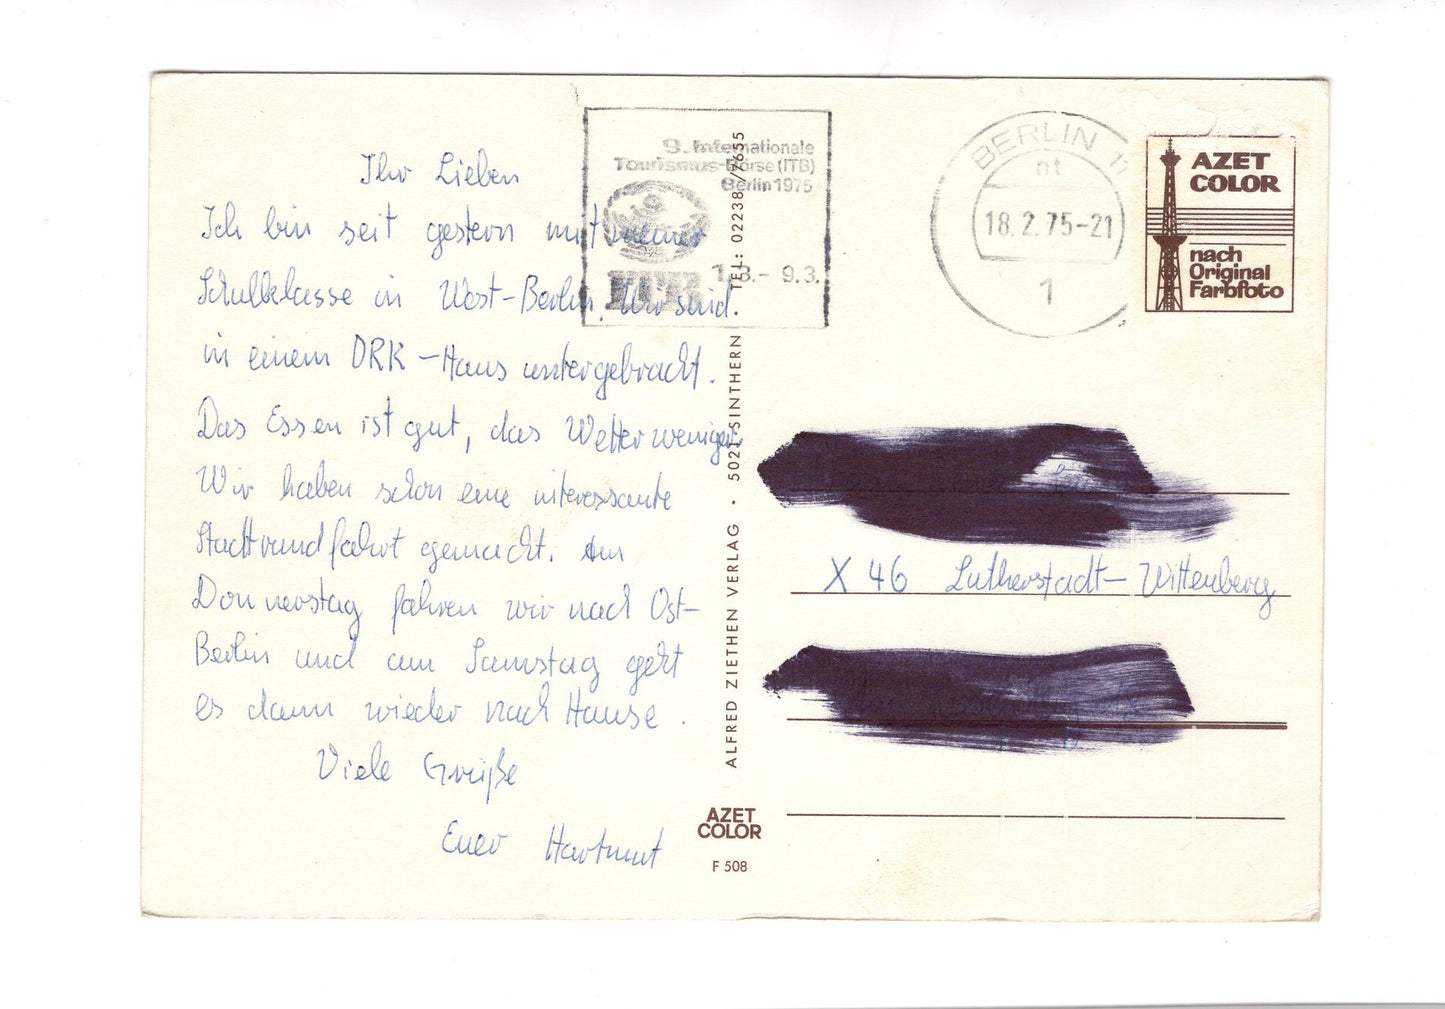 Ihr Lieben
Ich bin seit gestern mit meiner
Schulklasse in West-Berlin. Wir sind
in einem DRK-Haus untergebracht.
Das Essen ist gut, das Wetter weniger.
Wir haben schon eine interessante
Stadtrundfahrt gemacht. Am
Donnerstag fahren wir nach Ost-
Berlin und am Samstag geht
es dann wieder nach Hause.
Viele Grüße
Euer Hartmut
9. Internationale
Tourismus-Börse (ITB)
Berlin 1975
ITB 1.3.- 9.3.
ALFRED ZIETHEN VERLAG · 5021 SINTHERN TEL: 02238/7655
AZET
COLOR
F 508
BERLIN 11
nt
18.2.75-21
1
AZET
COLOR
nach
Original
Farbfoto
X 46 Lutherstadt-Wittenberg